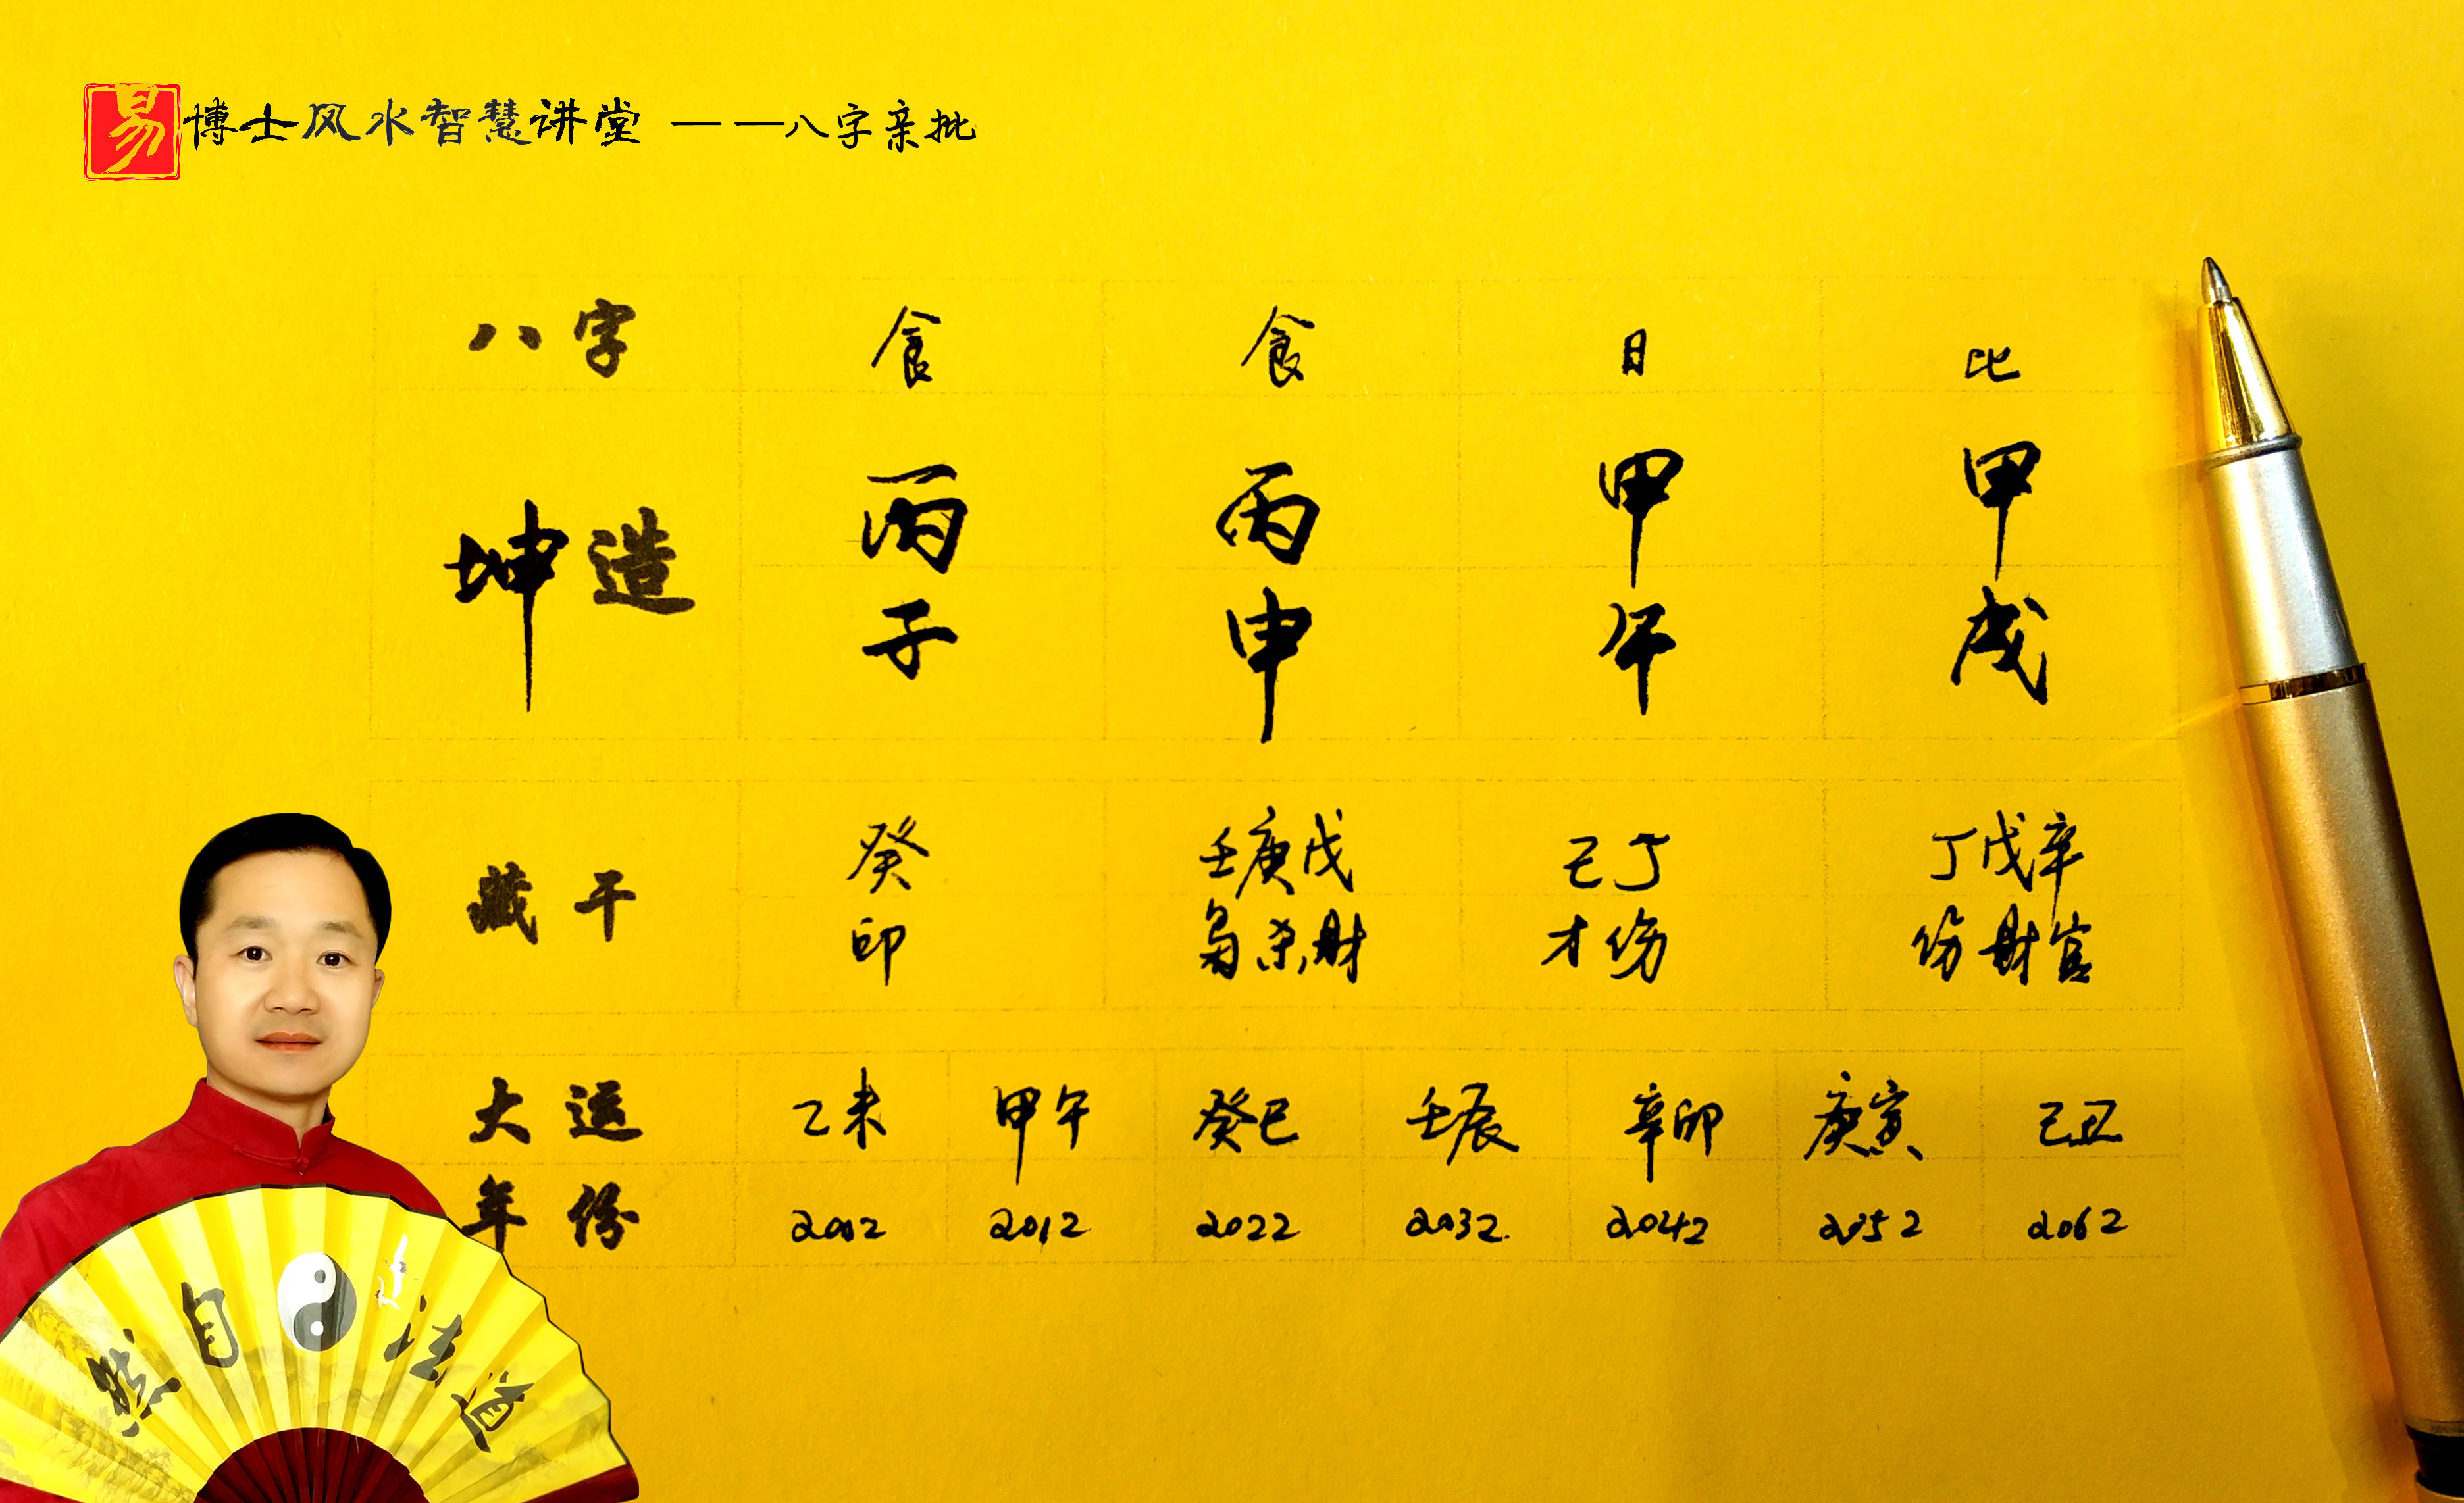 易博士风水智慧讲堂 ——八字亲批
八字 食 食 日 比
坤造 丙 丙 甲 甲
子 申 午 戌
藏干 癸 壬庚戊 己丁 丁戊辛
印 枭杀财 才伤 伤财官
大运 乙未 甲午 癸巳 壬辰 辛卯 庚寅 己丑
年份 2002 2012 2022 2032. 2042 2052 2062
然自法道